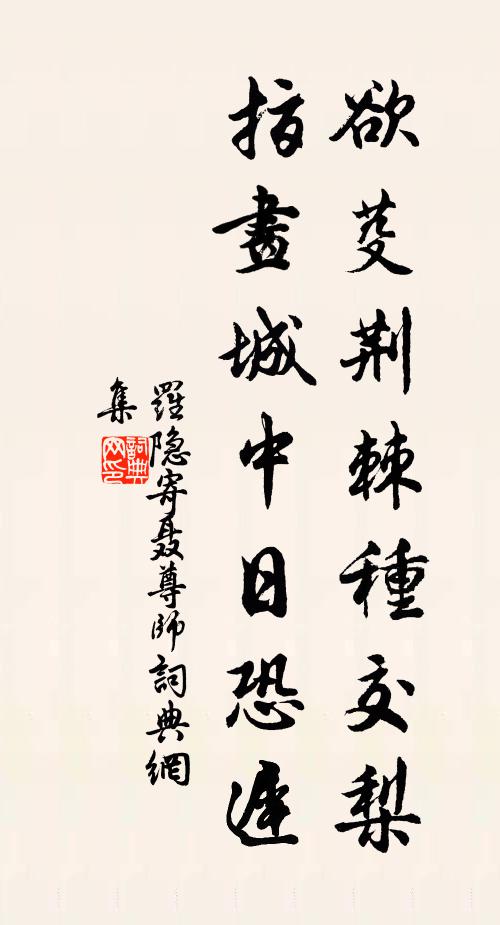 欲芟荆棘種交梨
指畫城中日恐遲
羅隐寄聂尊師詞典網
集
詞典网印